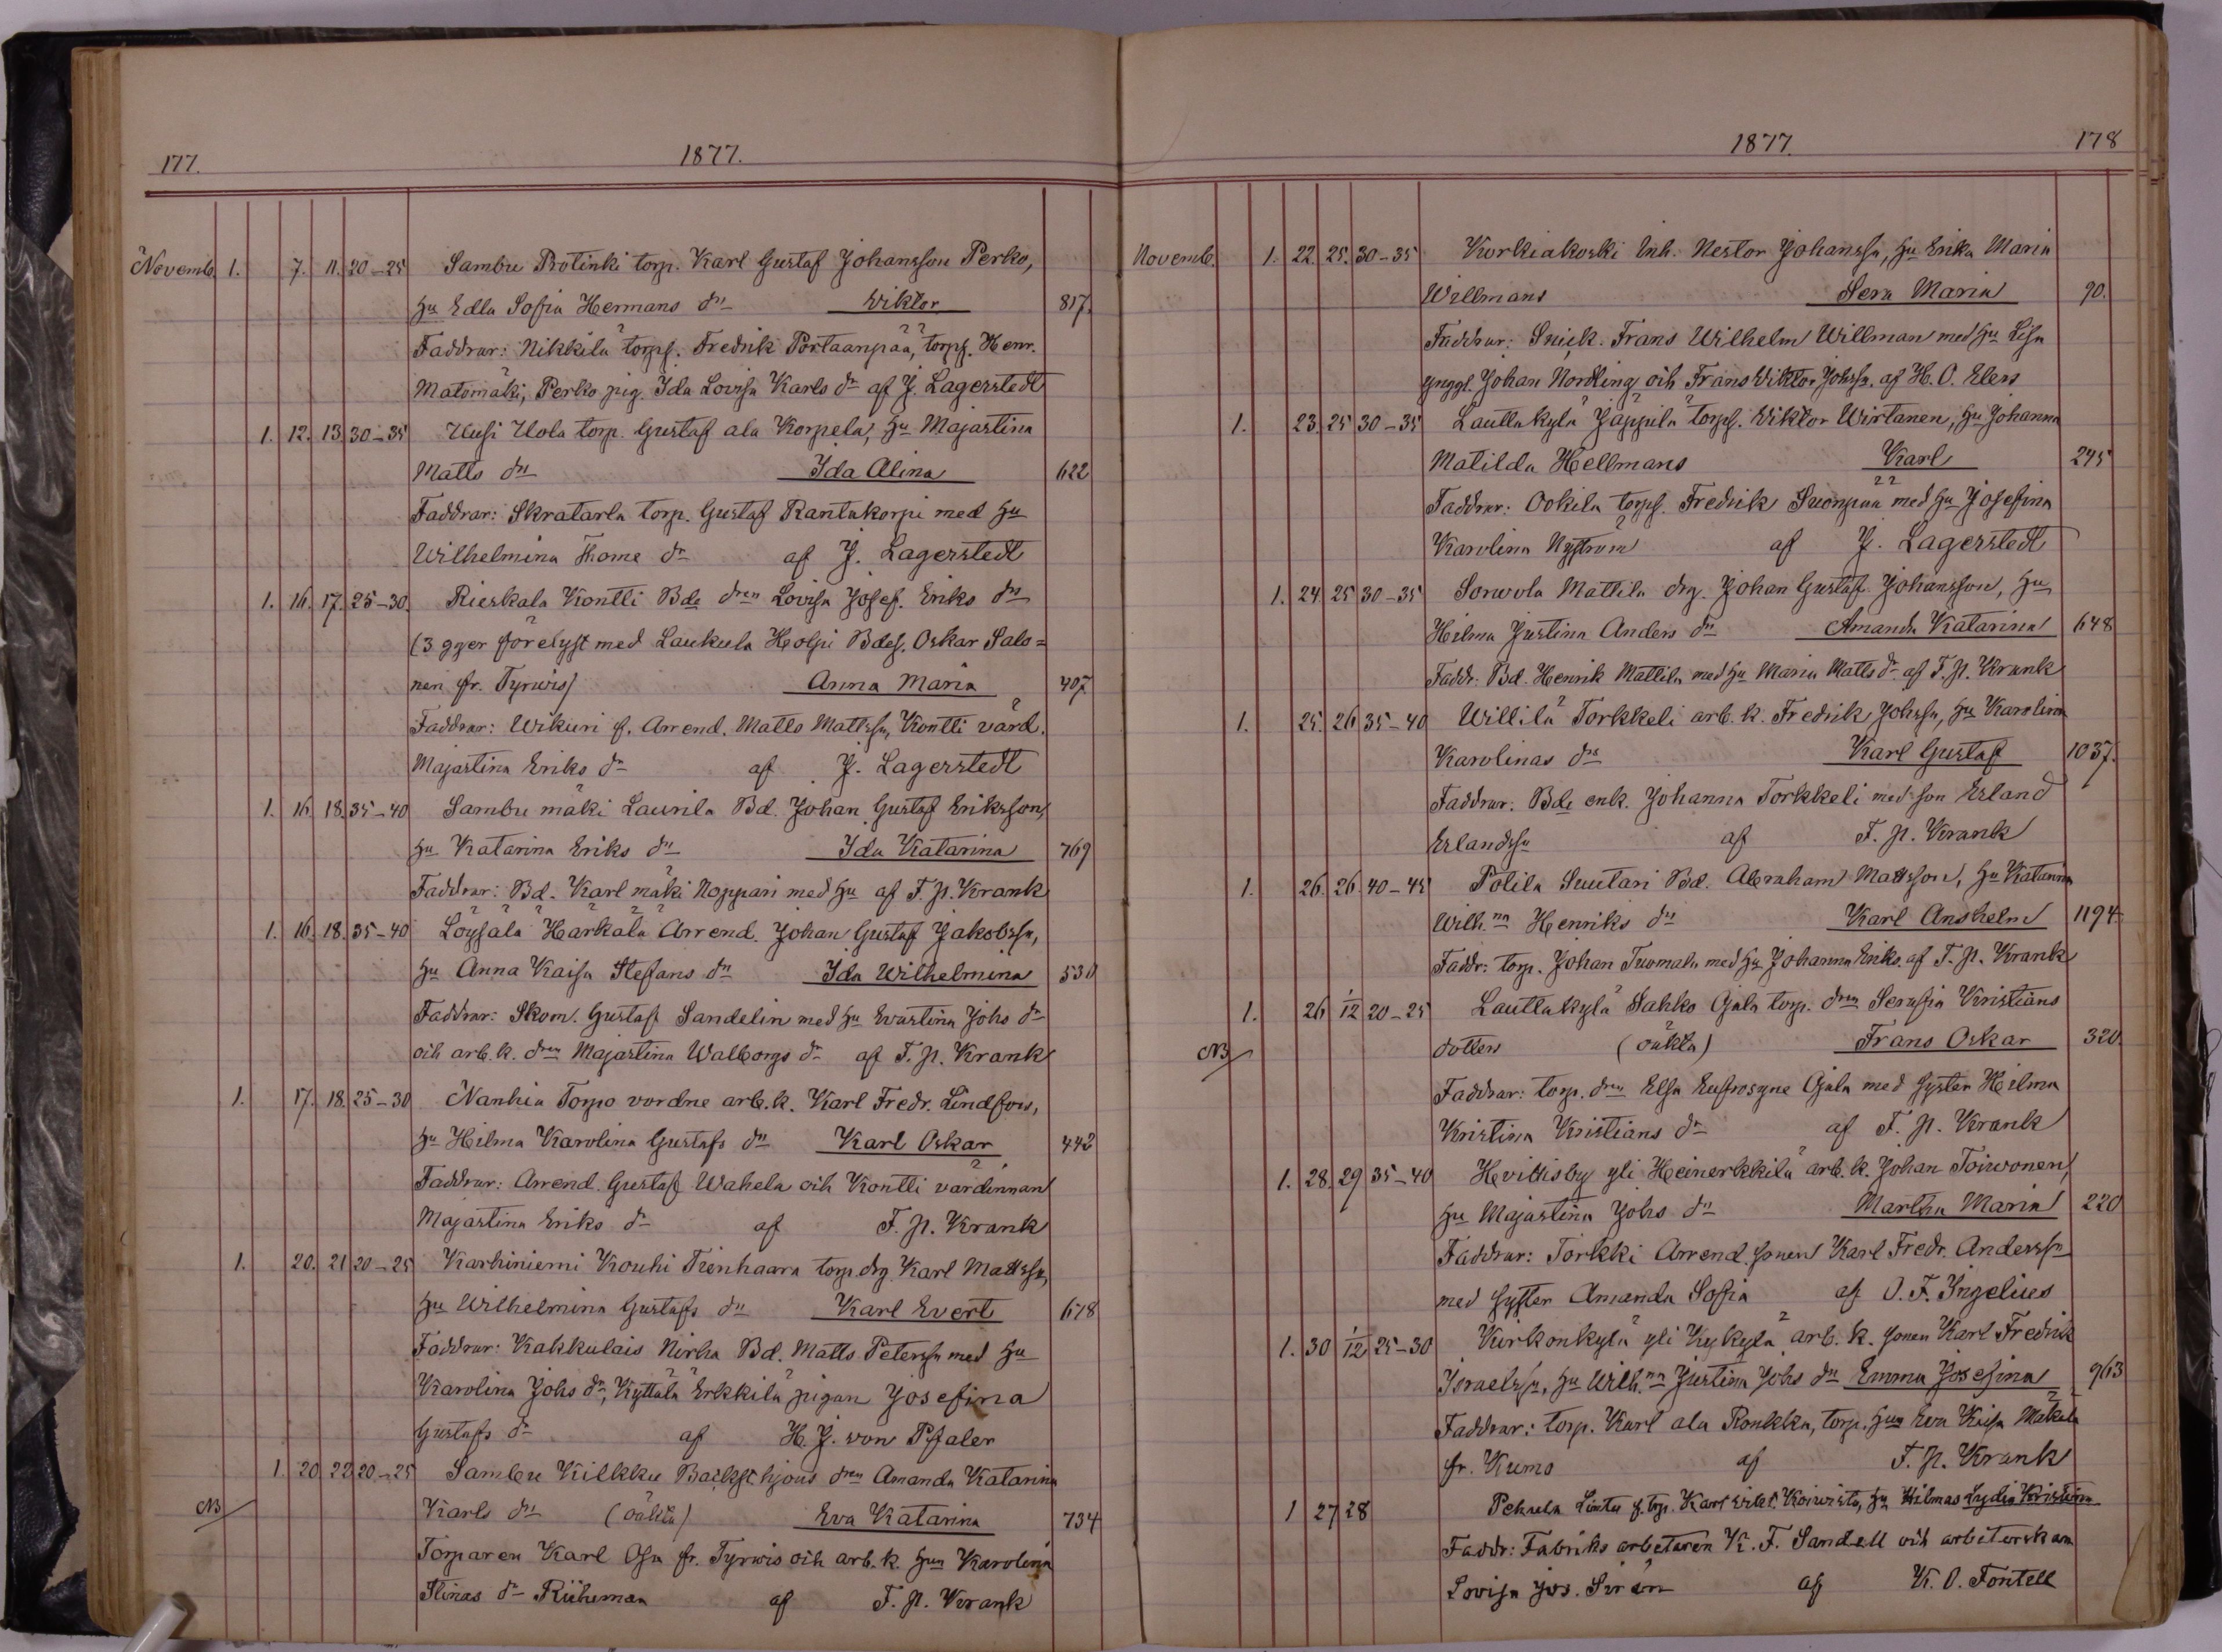 177. 1877.
Novemb. 1. 7. 11. 20-25 Sambu Protinki torp. Karl Gustaf Johansson Perko,
hu Edla Sofia Hermans dr Wiktor 817.
Faddrar: Nikkilä torpf. Fredrik Portaanpää, torpf. Henr.
Matomäki, Perko pig. Ida Lovisa Karls dr af J. Lagerstedt
1. 12. 13. 30-35 Uusi Uola torp. Gustaf ala Korpela, hu Majastina
Matts dr Ida Alina 622
Faddrar: Skratarla torp. Gustaf Rantakorpi med hu
Wilhelmina Thome dr af J. Lagerstedt
1. 16. 17. 25-30 Rieskala Kontti Bde dren Lovisa Josef. Eriks dr
(3 gger förelyst med Laukula Holpi Bdes. Oskar Salo=
nen fr. Tyrwis) Anna Maria 407
Faddrar: Wikuri f. Arrend. Matts Mattssn, Kontti värd.
Majastina Eriks dr af J. Lagerstedt
1. 16. 18. 35-40 Sambu mäki Laurila Bd. Johan Gustaf Eriksson,
hu Katarina Eriks dr Ida Katarina 769
Faddrar: Bd. Karl mäki Noppari med hu af F. H. Krank
1. 16. 18. 35-40 Löysälä Härkälä Arrend. Johan Gustaf Jakobssn,
hu Anna Kaisa Stefans dr Ida Wilhelmina 530
Faddrar: Skom. Gustaf Sandelin med hu Evastina Johs dr
och arb.k. dren Majastina Walborgs dr af F. H. Krank
1. 17. 18. 25-30 Nanhia Torpo vordne arb.k. Karl Fredr. Lindfors,
hu Hilma Karolina Gustafs dr Karl Oskar 442
Faddrar: Arrend. Gustaf Wahela och Kontti värdinnan
Majastina Eriks dr af F. H. Krank
1. 20. 21 20-25 Karhiniemi Kouhi Tienhaara torp. drg. Karl Mattssn,
hu Wilhelmina Gustafs dr Karl Evert 678
Faddrar: Kakkulais Nirha Bd. Matts Peterssn med hu
Karolina Johs dr, Kyttälä Erkkilä pigan Josefina
Gustafs dr af H. J. von Pfaler
1. 20. 22 20-25 Sambu Kilkku Backst. hjons dren Amanda Katarina
NB Karls dr (oäkta) Eva Katarina 734
Torparen Karl Osa fr. Tyrwis och arb. k. hun Karolina
Stinas dr Riihimaa af F. H. Krank
1877. 178
Novemb. 1. 22. 25. 30-35 Korkiakoski Inh. Nestor Johanssn, hu Erika Maria
Willmans Sera Maria 90.
Faddrar: Snick. Frans Wilhelm Willman med hu Lisa
ynggl. Johan Nordling och Frans Wiktor Johssn. af H. O. Elers
1. 23. 25 30-35 Lauttakylä Jäppilä torpf. Wiktor Wirtanen, hu Johanna
Matilda Hellmans Karl 245
Faddrar: Ookila torpf. Fredrik Suonpää med hu Josefina
Karolina Nyström af J. Lagerstedt
1. 24 25 30-35 Sorwola Mattila drg. Johan Gustaf Johansson, hu
Hilma Justina Anders dr Amanda Katarina 648
Faddr: Bd. Henrik Mattila med hu Maria Matts dr af F. H. Krank
1. 25. 26 35-40 Willilä Torkkeli arb. k. Fredrik Johssn, hu Karolina
Karolinas dr Karl Gustaf 1037.
Faddrar: Bde enk. Johanna Torkkeli med son Erland
Erlandssn af F. H. Krank
1. 26. 26. 40-45 Polila Suutari Bd. Abraham Mattsson, hu Katarina
Wilh.na Henriks dr Karl Anshelm 1194.
Faddr: torp. Johan Tuomala med hu Johanna Eriks. af F. H. Krank
1. 26 1/12 20-25 Lauttakylä Sahko Ojala torp. dren Serafia Kristians
NB dotters (oäkta) Frans Oskar 320.
Faddrar: torp. dren Elsa Eufrosyne Ojala med syster Hilma
Kristina Kristians dr af F. H. Krank
1. 28. 29 35-40 Hvittisby yli Heinerkkilä arb. k. Johan Toiwonen,
hu Majastina Johs dr Martha Maria 220
Faddrar: Torkki Arrend. sonen Karl Fredr. Anderssn
med syster Amanda Sofia af O. F. Ingelius
1. 30 1/12 25-30 Kirkonkylä yli Kykylä arb. k. sonen Karl Fredrik
Israelssn, hu Wilh.na Justina Johs dr Emma Josefina 963
Faddrar: torp. Karl ala Ronkka, torp. hun Eva Kaisa Mäkelä
fr. Kumo af F. H. Krank
1 27 28 Pehula Lintu f. torp. Karl Koiwisto, hu Hilmas Lydia Kristina
Faddr: Fabriks arbetaren K. F. Sandell och arbeterskan
Lovisa Jos. Sirén af K. O. Fontell